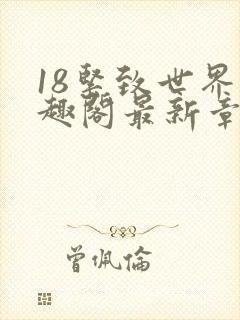 18紧致世界
趣阁最新章
曾佩倫